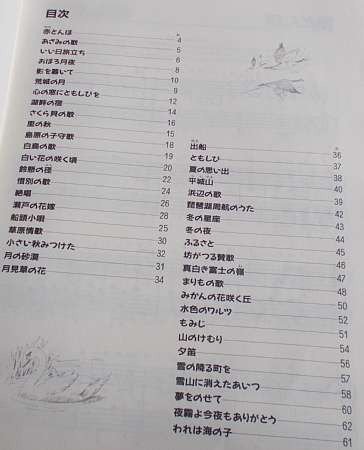 目次
p.
赤とんぼ 4
あざみの歌 5
いい日旅立ち 6
おぼろ月夜 8
影を慕いて 9
荒城の月 10
心の窓にともしびを 12
湖畔の宿 14
さくら貝の歌 16
里の秋 15
島原の子守歌 18
白鳥の歌 19
白い花の咲く頃 20
鈴懸の径 21
惜別の歌 24
絶唱 25
瀬戸の花嫁 28
船頭小唄 29
草原情歌 30
小さい秋みつけた 32
月の砂漠 31
月見草の花 34
出船 36
ともしび 37
夏の思い出 38
平城山
浜辺の歌 40
琵琶湖周航のうた 42
冬の星座
冬の夜 44
ふるさと
坊がつる賛歌 46
真白き富士の嶺 47
まりもの歌 48
みかんの花咲く丘 50
水色のワルツ
もみじ 51
山のけむり 54
夕笛 56
雪の降る町を 57
雪山に消えたあいつ 58
夢をのせて 60
夜霧よ今夜もありがとう 62
われは海の子 61